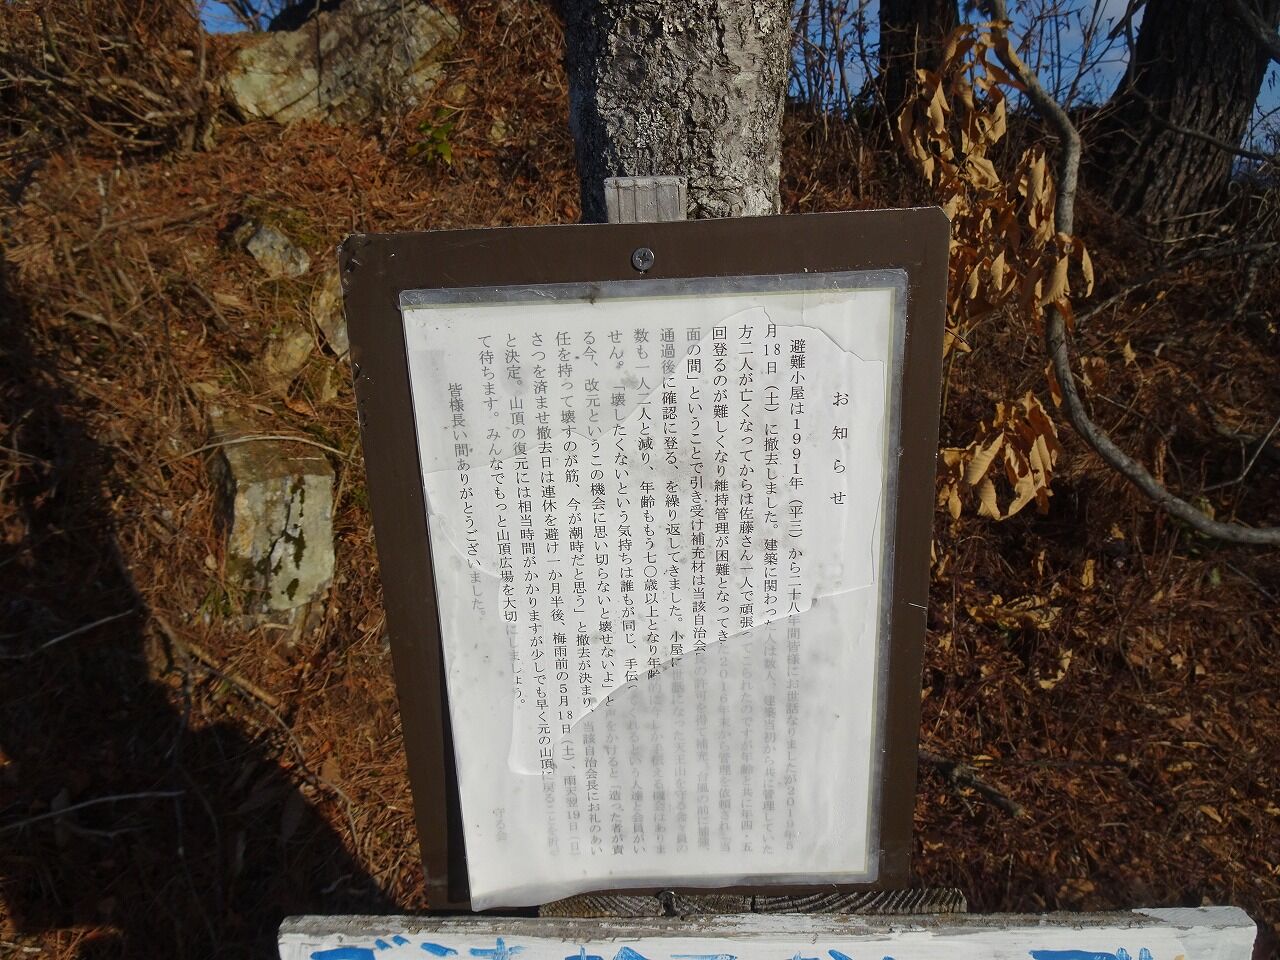 お知らせ
避難小屋は1991年（平三）から二十八年間皆様にお世話なりましたが2019年5
月18日（土）に撤去しました。建築に関わった人は数人、建築当初から共に管理していた
方二人が亡くなってからは佐藤さん一人で頑張ってこられたのですが年齢と共に年四・五
回登るのが難しくなり維持管理が困難となってきた2016年末から管理を依頼され「当
面の間」ということで引き受け補充材は当該自治会長の許可を得て補充、台風の前に補強、
通過後に確認に登る、を繰り返してきました。小屋に世話になった天王山を守る会々員の
数も一人二人と減り、年齢ももう七〇歳以上となり年齢的に今しか手伝える機会はありま
せん。「壊したくないという気持ちは誰もが同じ、手伝ってくれるという人達と会員がい
る今、改元というこの機会に思い切らないと壊せないよ」と声をかけると「造った者が責
任を持って壊すのが筋、今が潮時だと思う」と撤去が決まり、当該自治会長にお礼のあい
さつを済ませ撤去日は連休を避け一か月半後、梅雨前の5月18日（土）、雨天翌19日（日）
と決定。山頂の復元には相当時間がかかりますが少しでも早く元の山頂に戻ることを祈っ
て待ちます。みんなでもっと山頂広場を大切にしましょう。
皆様長い間ありがとうございました。
守る会